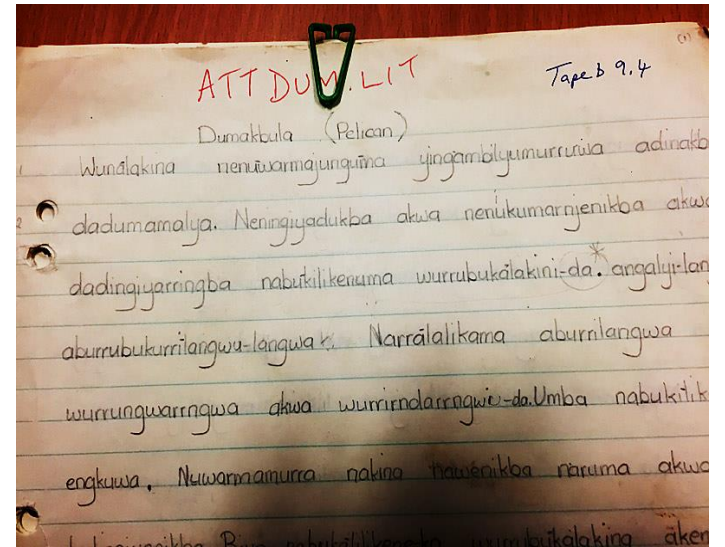 (1)
ATTDUM.LIT
Tape b 9.4
Dumakbula (Pelican)
1 Wunálakina nenuwarmajungu​ma yingambilyumurruruwa adinakb
2 dadumamalya. Neningiyadukba akwa nenukumarnjenikba akwa
dadingiyarringba nabukilikenuma wurrubukálakini-da. angalyi-lan
aburrubukurrilangwu-langwa. Narrálalikama aburrilangwa
wurrungwarrngwa akwa wurrirndarrngwu-da. Umba nabukilik
engkuwa. Nuwarmamurra nakina nawenikba naruma akwa